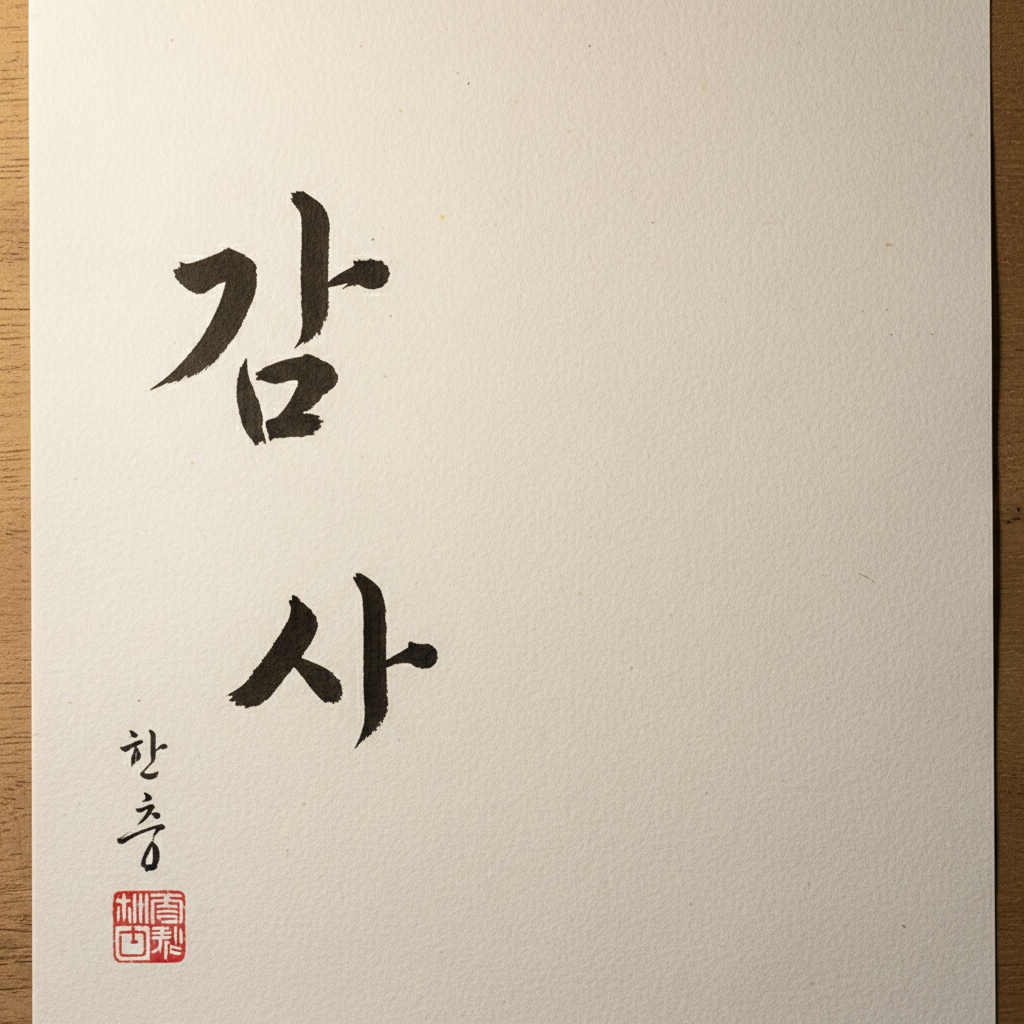 감
사
한
충